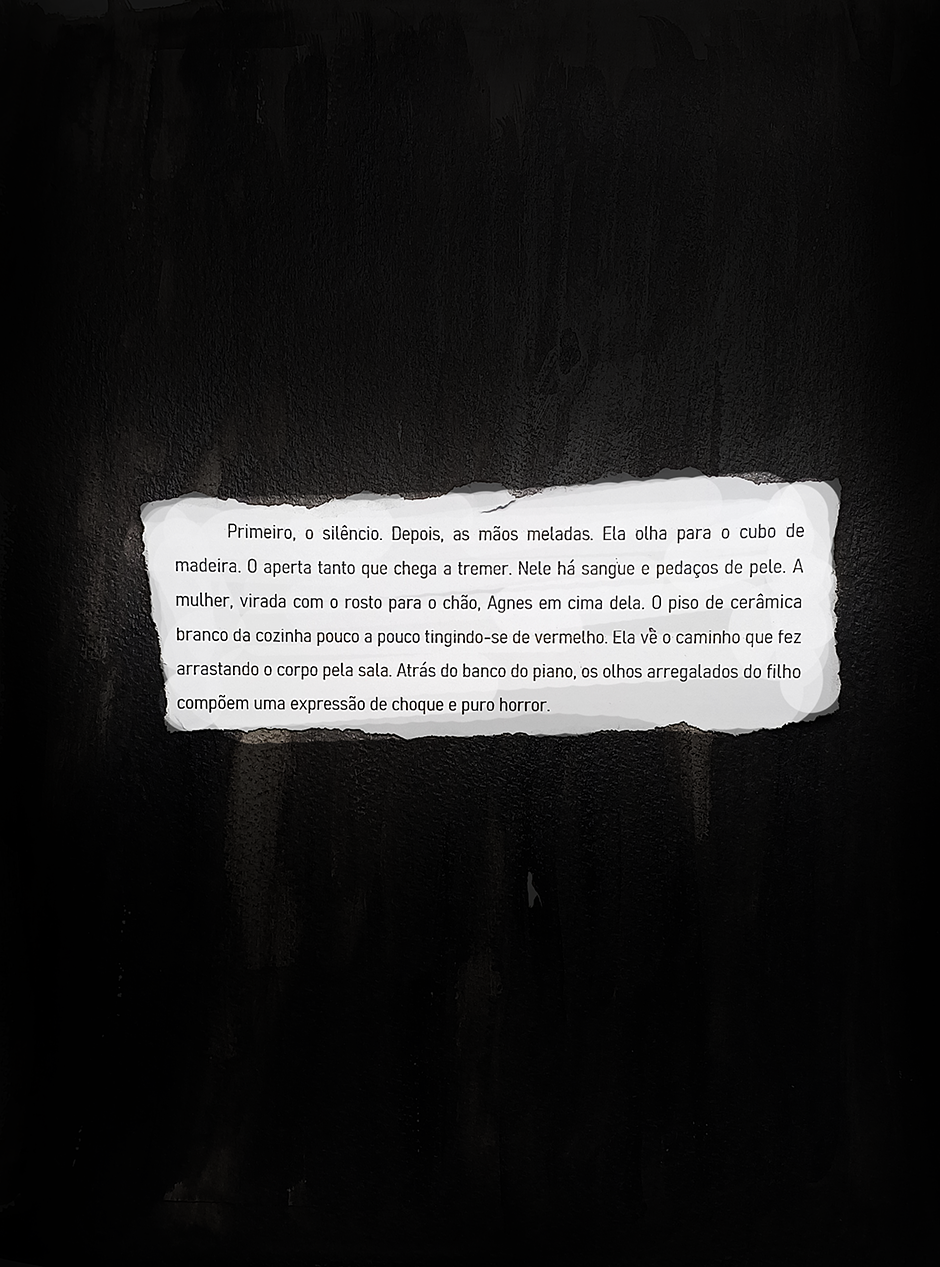 Primeiro, o silêncio. Depois, as mãos meladas. Ela olha para o cubo de
madeira. O aperta tanto que chega a tremer. Nele há sangue e pedaços de pele. A
mulher, virada com o rosto para o chão, Agnes em cima dela. O piso de cerâmica
branco da cozinha pouco a pouco tingindo-se de vermelho. Ela vê o caminho que fez
arrastando o corpo pela sala. Atrás do banco do piano, os olhos arregalados do filho
compõem uma expressão de choque e puro horror.